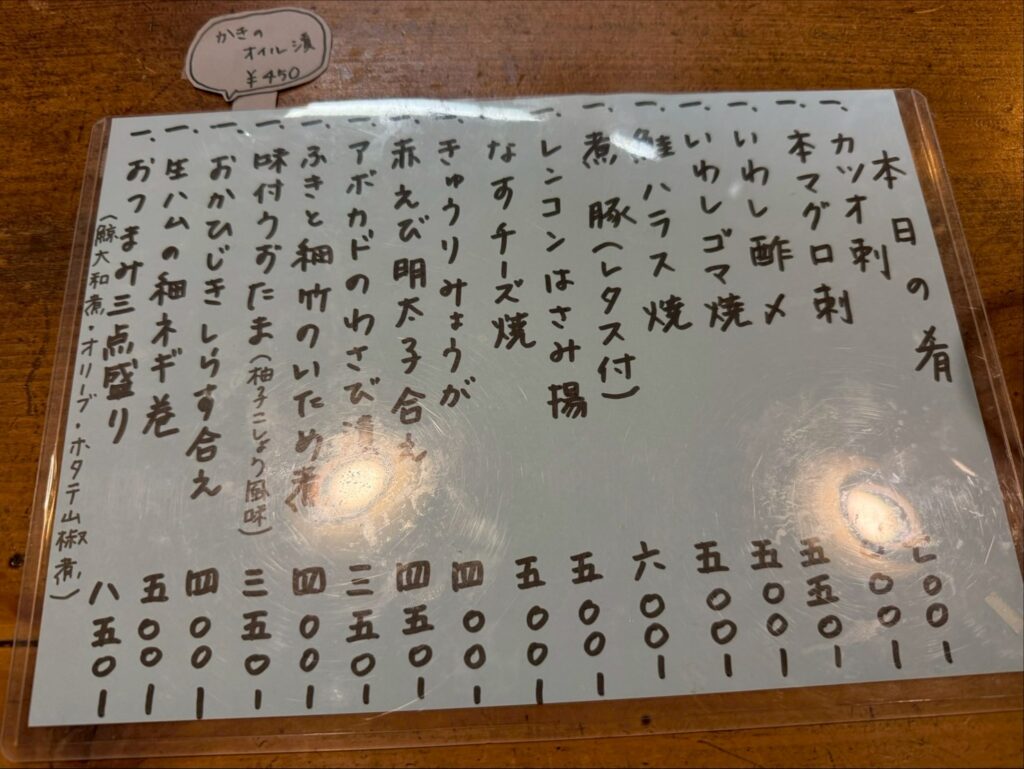 かきの
オイル漬
¥450
本日の肴
一、カツオ刺 七〇〇ー
一、本マグロ刺 〇〇ー
一、いわし酢〆 五五〇ー
一、いわしゴマ焼 五〇〇ー
一、鮭ハラス焼 五〇〇ー
一、煮豚(レタス付) 六〇〇ー
一、レンコンはさみ揚 五〇〇ー
一、なすチーズ焼 五〇〇ー
一、きゅうりみょうが 四〇〇ー
一、赤えび明太子合え 四五〇ー
一、アボカドのわさび漬 三五〇ー
一、ふきと細竹のいため煮 四〇〇ー
一、味付うおたま(柚子こしょう風味) 三五〇ー
一、おかひじきしらす合え 四〇〇ー
一、生ハムの細ネギ巻 五〇〇ー
一、おつまみ三点盛り 八五〇ー
(鯨大和煮・オリーブ・ホタテ山椒煮)